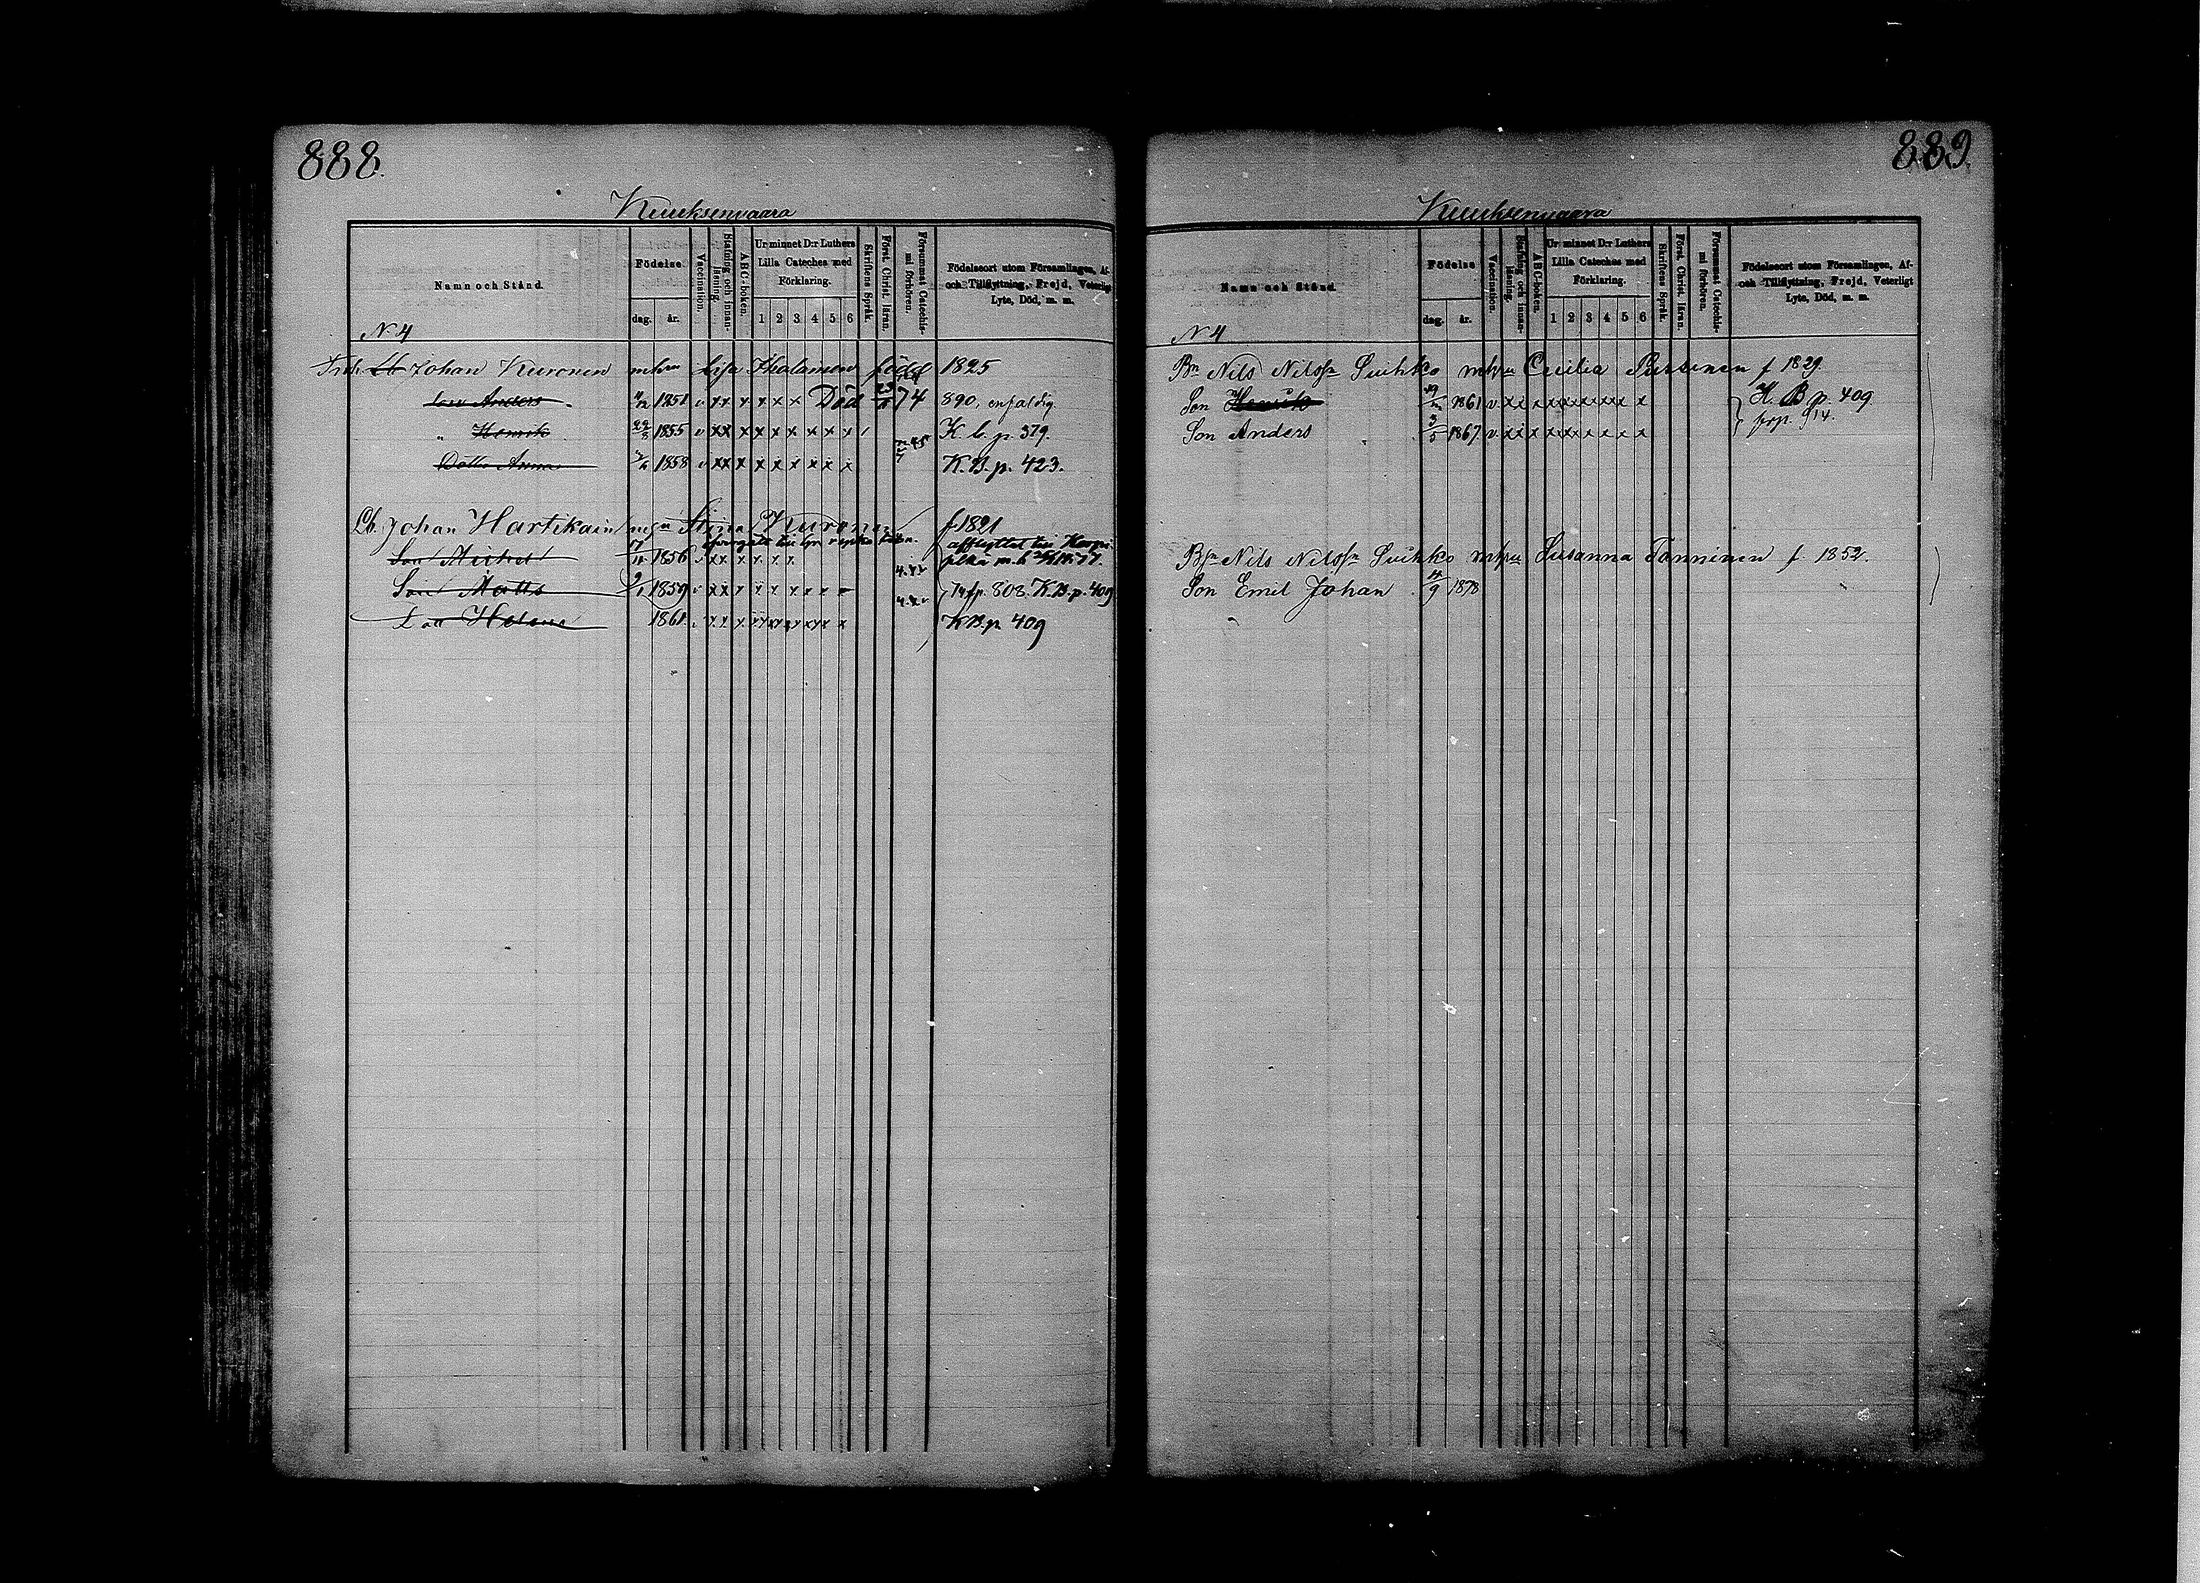 888.
Kuuksenvaara
Namn och Stånd.
Födelse
dag. år.
Vaccination.
Stafning och innan-läsning.
ABC-boken.
Ur minnet D:r Luthers
Lilla Cateches med
Förklaring.
1 2 3 4 5 6
Skriftens Språk.
Först. Christ. läran.
Försummat Catechismi förhören.
Födelseort utom Församlingen, Af-
och Tillflyttning, Frejd, Veterligt
Lyte, Död, m. m.
N 4
Johan Kuronen mhru Lisa Ihalainen född 1825
Son Anders 1851 v x x x x x x Död 74 890, enfaldig.
" Henrik 1855 v x x x x x x x x x K. b. p. 379.
Dottr Anna 1858 v x x x x x x x x x K.B. p. 423.
Lb. Johan Hartikain Stina Kuronen f 1821
Son Michel 1856 v x x x x x x afflyttat till
Son Matts 1859 v x x x x x x x x 808. K.B. p. 409
Dott Helena 1861 v x x x x x x x x x K.B. p. 409
889.
Kuuksenvaara
Namn och Stånd.
Födelse
dag. år.
Vaccination.
Stafning och innan-läsning.
ABC-boken.
Ur minnet D:r Luthers
Lilla Cateches med
Förklaring.
1 2 3 4 5 6
Skriftens Språk.
Först. Christ. läran.
Försummat Catechismi förhören.
Födelseort utom Församlingen, Af-
och Tillflyttning, Frejd, Veterligt
Lyte, Död, m. m.
N 4
Bn Nils Nilssn Suihko mhru Cecilia f 1829.
Son Henrik 1861 v x x x x x x x x x K. B. p. 409
Son Anders 3/5 1867 v x x x x x x x x x
Bsn Nils Nilssn Suihko mhru Susanna Tanninen f 1852.
Son Emil Johan 1878